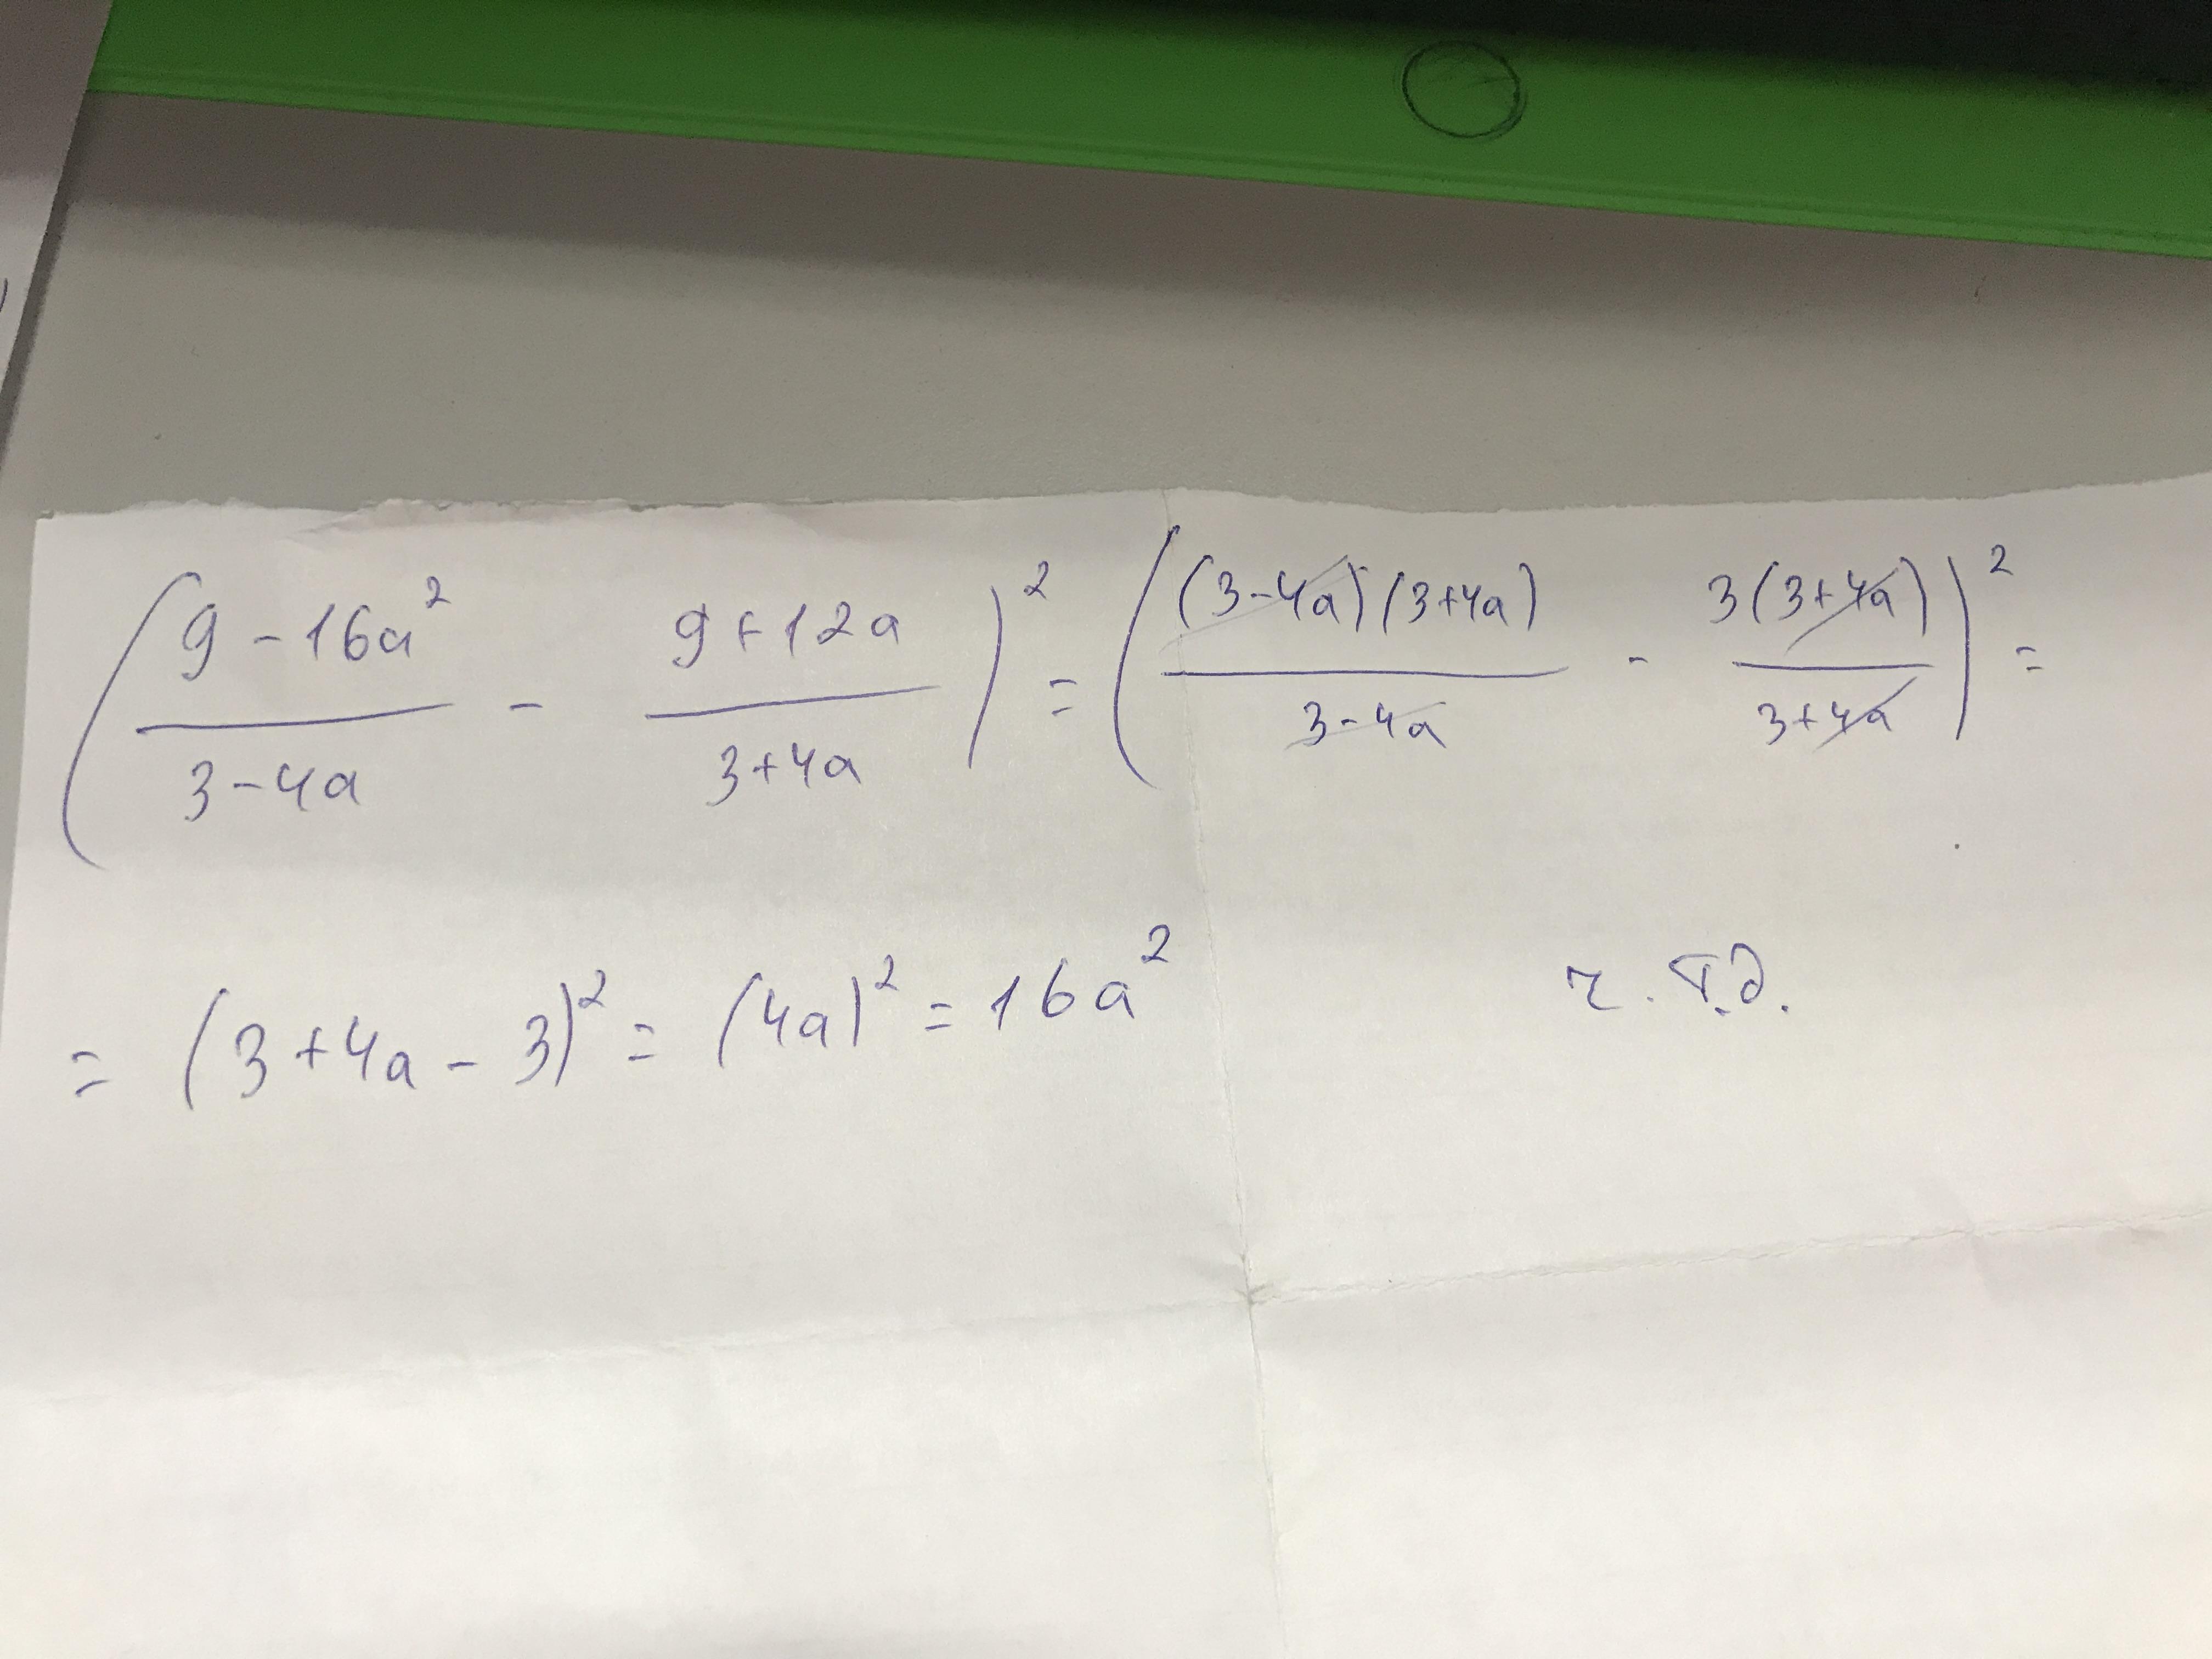 (9-16a²/3-4a - 9+12a/3+4a)² = ((3-4a)(3+4a)/3-4a - 3(3+4a)/3+4a)² =
= (3+4a-3)² = (4a)² = 16a² ч.т.д.